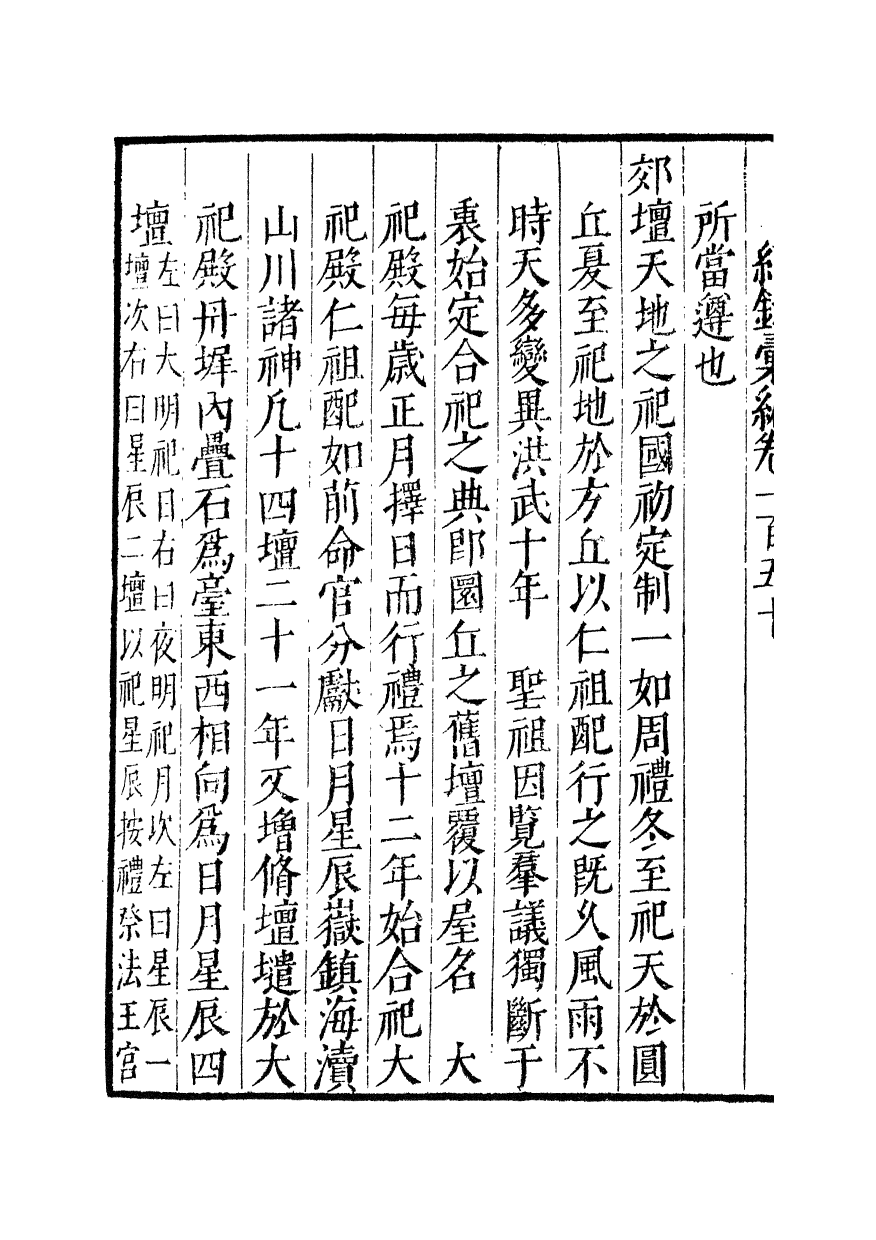 紀錄彙編卷一百五十
所當遵也
郊壇天地之祀國初定制一如周禮冬至祀天於圓
丘夏至祀地於方丘以仁祖配行之既久風雨不
時天多變異洪武十年　聖祖因覽羣議獨斷于
衷始定合祀之典即圜丘之舊壇覆以屋名　大
祀殿每歲正月擇日而行禮焉十二年始合祀大
祀殿仁祖配如前命官分獻日月星辰嶽鎮海瀆
山川諸神凡十四壇二十一年又增脩壇壝於大
祀殿丹墀內疊石爲臺東西相向爲日月星辰四
壇左曰大明祀日右曰夜明祀月次左曰星辰一
壇次右曰星辰二壇以祀星辰按禮祭法王宮